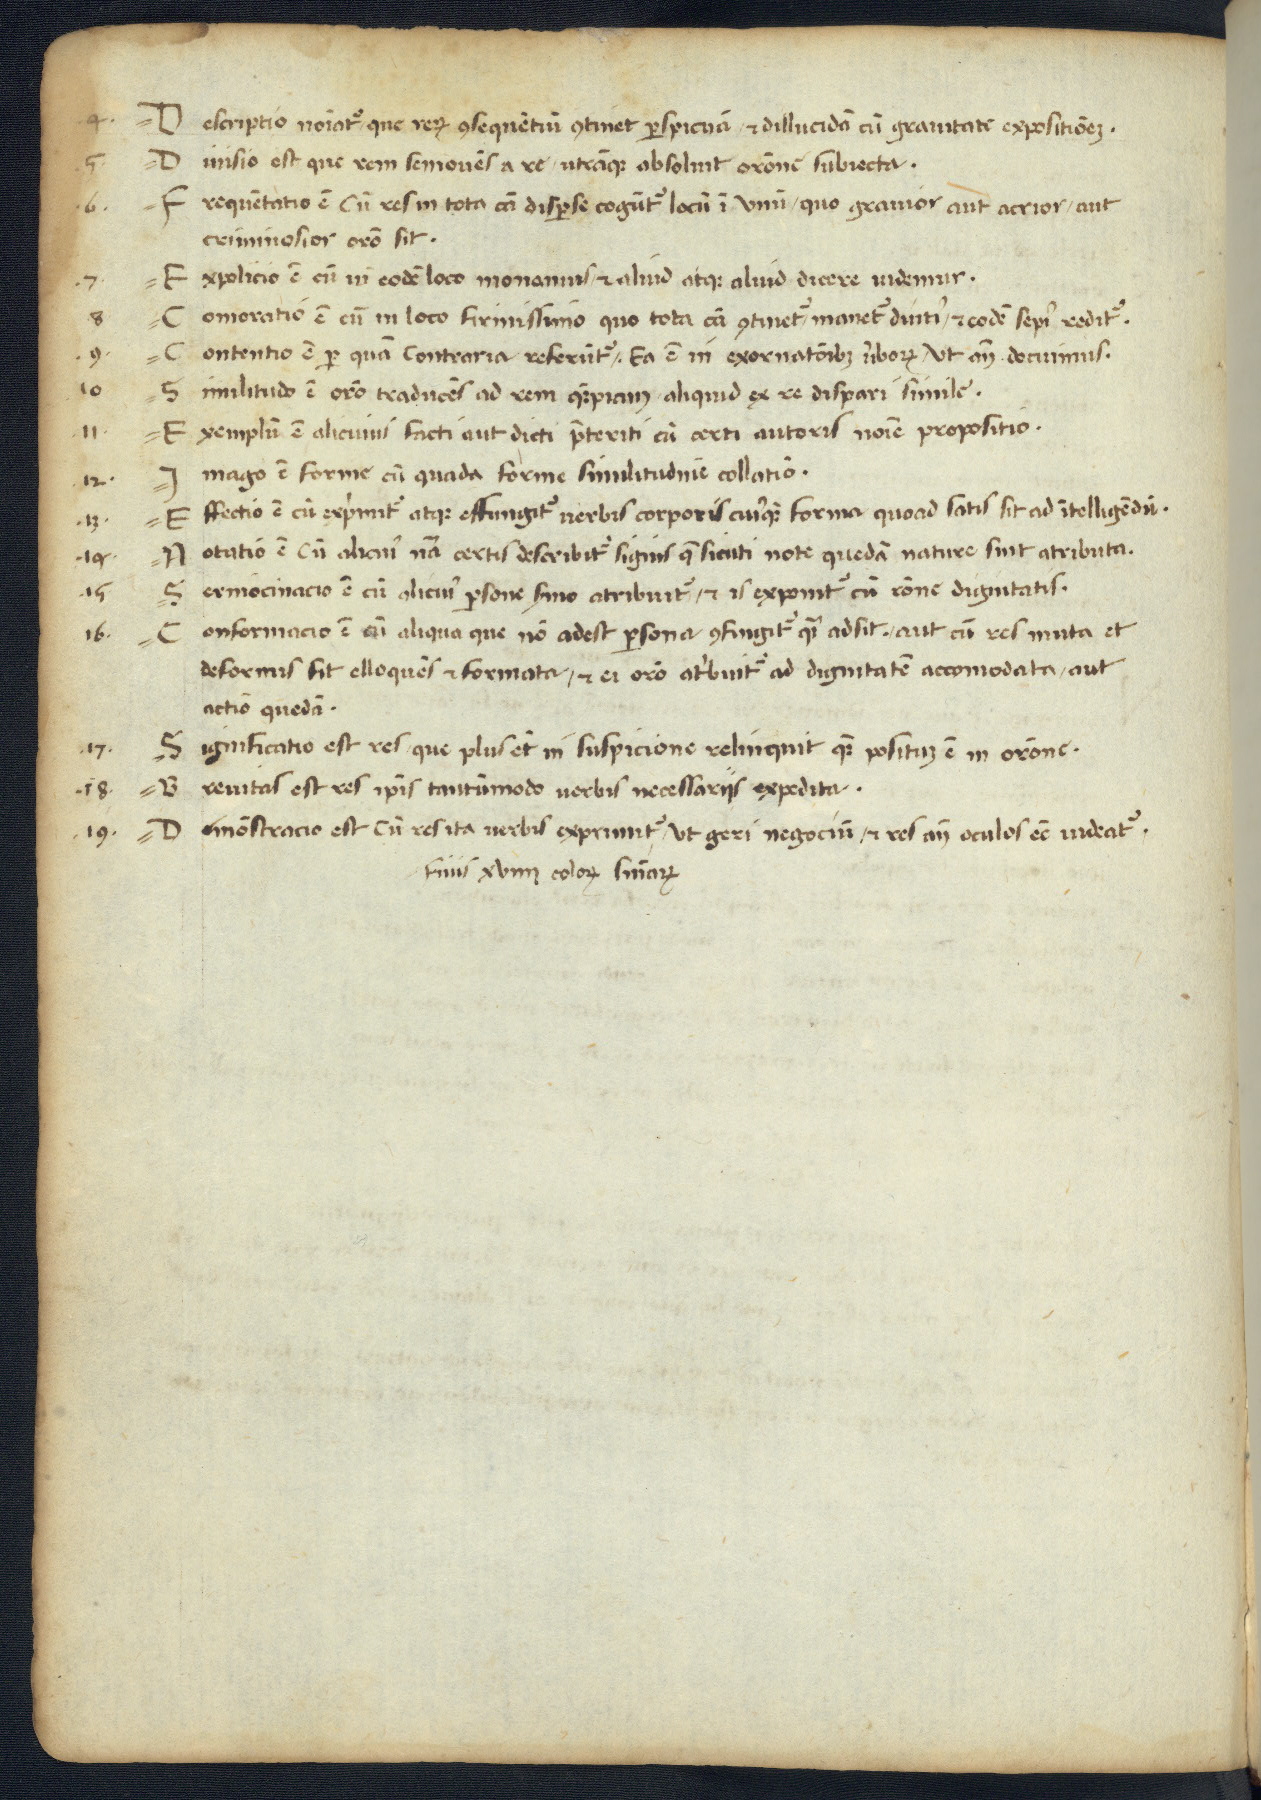 .4. D escriptio noīat᷑ que reꝝ ꝯsequētiū ꝯtinet ꝑspicuā / ⁊ dillucidā cū grauitate expositiōeꝫ .
5. D iuisio est que rem semouēs a re / utrāqꝫ absoluit orōne subiecta .
.6. F requētatio ē Cū res in tota cā disꝑse cogūt᷑ locū ī vnū / quo grauior aut acrior / aut
criminosior orō sit .
.7. E xpolicio ē cū in eodē loco moneamus / ⁊ aliud atqꝫ aliud dicere uidemur .
8 C omoratio ē cū in loco firmissimo quo tota cā ꝯtinet᷑ / manet᷑ diuti᷒ / ⁊ eodē sepi᷒ redit᷑ .
.9. C ontentio ē ꝑ quā Contraria referūt᷑ . Ea ē in exornatōibꝫ ūboꝝ / Vt añ docuimus .
10 S imilitudo ē orō traducēs ad rem qꝫpiam aliquid ex re dispari simile .
.11. E xemplū ē alicuius facti aut dicti p̄teriti cū certi autoris noīe propositio .
.12. I mago ē forme cū quada forme similitudine collatio .
.13. E ffectio ē cū exp̄mit᷑ atqꝫ effingit᷑ uerbis corporis cui᷒qꝫ forma quoad satis sit ad ītelligēdū .
.14. N otatio ē Cū alicui᷒ nā certis describit᷑ signis q̄ sicuti note quedā nature sint atributa .
.15 S ermocinacio ē cū alicui᷒ ꝑsone s̄mo atribuit᷑ / ⁊ is exponit᷑ cū rōne dignitatis .
16. C onformacio ē cū aliqua que nō adest ꝑsona ꝯfingit᷑ q̄i adsit . / aut cū res muta et
deformis fit elloquēs ⁊ formata / ⁊ ei orō at̄buit᷑ ad dignitatē accomodata / aut
actio quedā .
.17. S ignificatio est res / que plus et̄ in suspicione relinquit qꝫ posituꝫ ē in orōne .
.18. B reuitas est res ip̄is tantūmodo uerbis necessarijs expedita .
.19. D emōstracio est Cū res ita uerbis exprimit᷑ / Vt geri negociū / ⁊ res añ oculos eē uideat᷑ .
finis xviiij coloꝝ sn̄iaꝝ